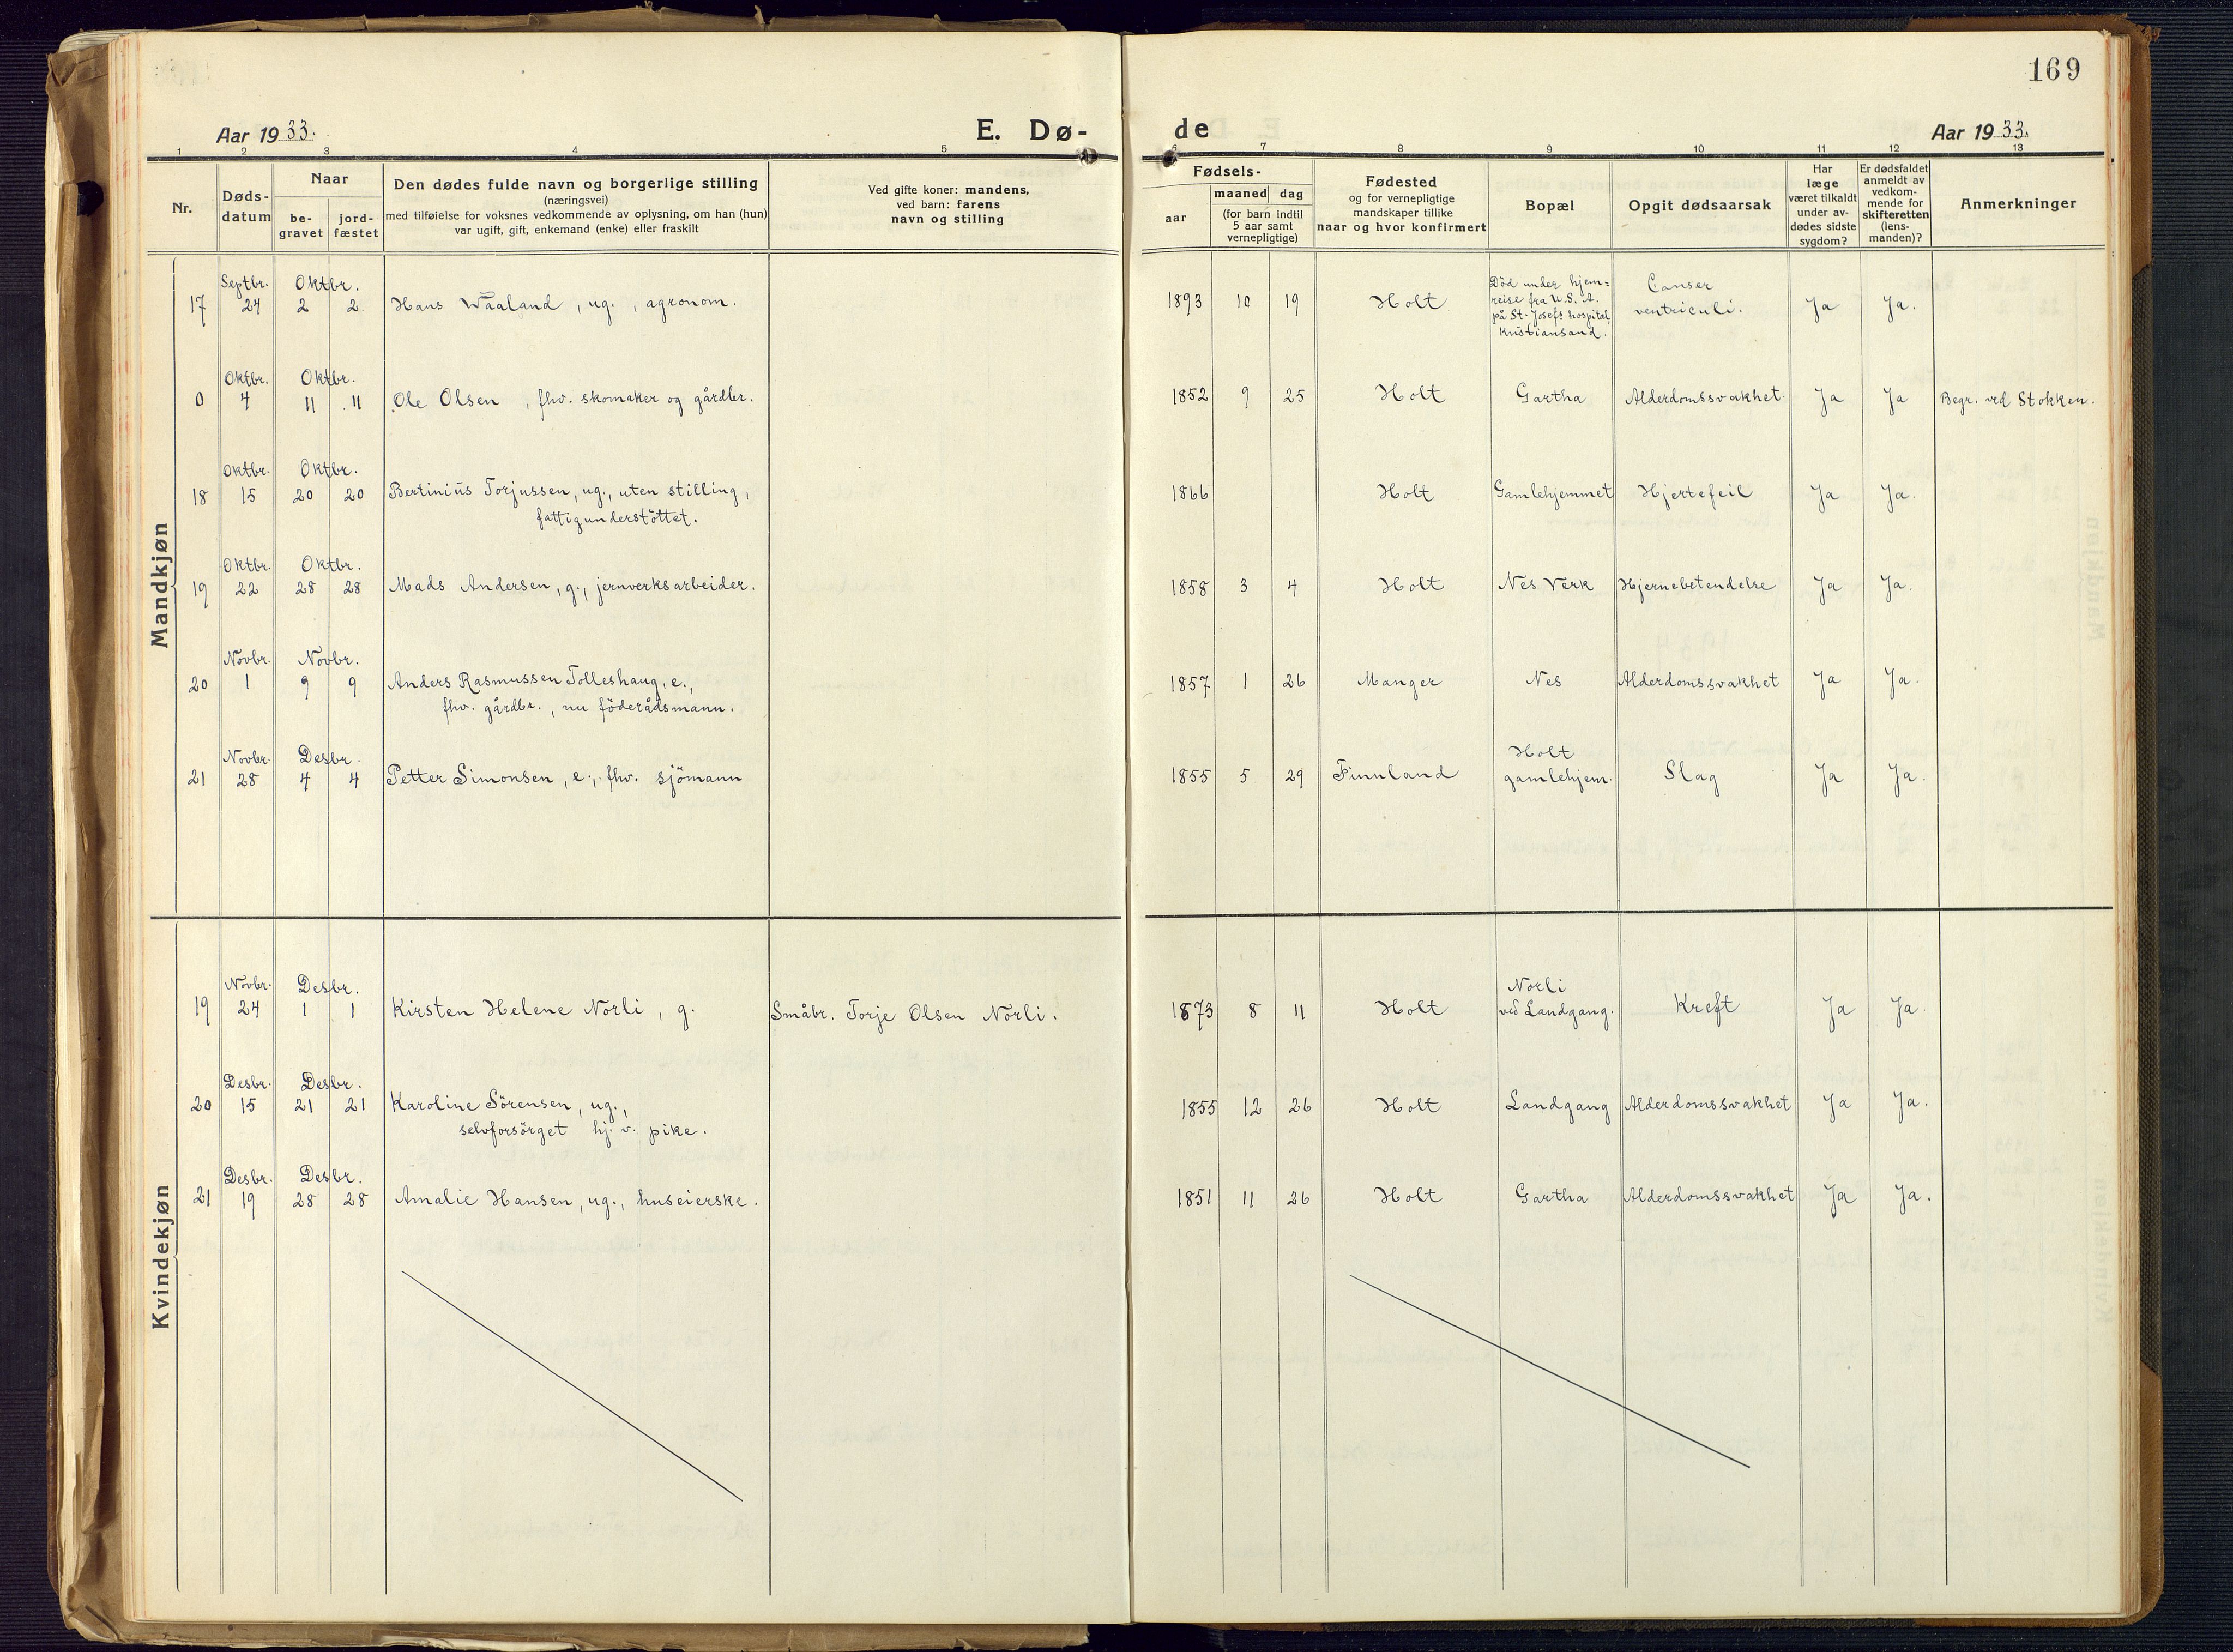 169
Aar 1933.
E. Dø-
de
Aar 1933.
1 2 3 4 5 6 7 8 9 10 11 12 13
Nr.
Døds-
datum
Naar
be-
gravet
jord-
fæstet
Den dødes fulde navn og borgerlige stilling
(næringsvei)
med tilføielse for voksnes vedkommende av oplysning, om han (hun)
var ugift, gift, enkemand (enke) eller fraskilt
Ved gifte koner: mandens,
ved barn: farens
navn og stilling
Fødsels-
aar
maaned dag
(for barn indtil
5 aar samt
vernepligtige)
Fødested
og for vernepligtige
mandskaper tillike
naar og hvor konfirmert
Bopæl
Opgit dødsaarsak
Har
læge
været tilkaldt
under av-
dødes sidste
sygdom?
Er dødsfaldet
anmeldt av
vedkom-
mende for
skifteretten
(lens-
manden)?
Anmerkninger
Mandkjøn
Septbr. Oktbr.
17 24 2 2 Hans Waaland, ug., agronom. 1893 10 19 Holt
Död under hjem=
reise fra U.S.A.
på St. Josefs hospital,
Kristiansand.
Canser
ventriculi.
Ja Ja.
Oktbr. Oktbr.
0 4 11 11 Ole Olsen, fhv. skomaker og gårdbr. 1852 9 25 Holt Gartha Alderdomssvakhet Ja Ja Begr. ved Stokken.
Oktbr. Oktbr.
18 15 20 20 Bertinius Torjussen, ug., uten stilling, 1866 Holt Gamlehjemmet Hjertefeil Ja Ja.
fattigunderstöttet.
Oktbr. Oktbr.
19 22 28 28 Mads Andersen, g., jernverksarbeider. 1858 3 4 Holt Nes Verk Hjernebetendelse Ja Ja.
Novbr. Novbr.
20 1 9 9 Anders Rasmussen Tolleshaug, e., 1857 1 26 Manger Nes Alderdomssvakhet Ja Ja.
fhv. gårdbr., nu föderådsmann.
Novbr. Desbr. Holt
21 28 4 4 Petter Simonsen, e., fhv. sjömann 1855 5 29 Finnland gamlehjem. Slag Ja Ja.
Kvindekjøn
Novbr. Desbr. Norli
19 24 1 1 Kirsten Helene Norli, g. Småbr. Torje Olsen Norli. 1873 8 11 Holt ved Landgang. Kreft Ja Ja.
Desbr. Desbr.
20 15 21 21 Karoline Sörensen, ug., 1855 12 26 Holt Landgang Alderdomssvakhet Ja Ja.
selvforsörget hj. v. pike.
Desbr. Desbr.
21 19 28 28 Amalie Hansen, ug., huseierske. 1851 11 26 Holt Gartha Alderdomssvakhet Ja Ja.